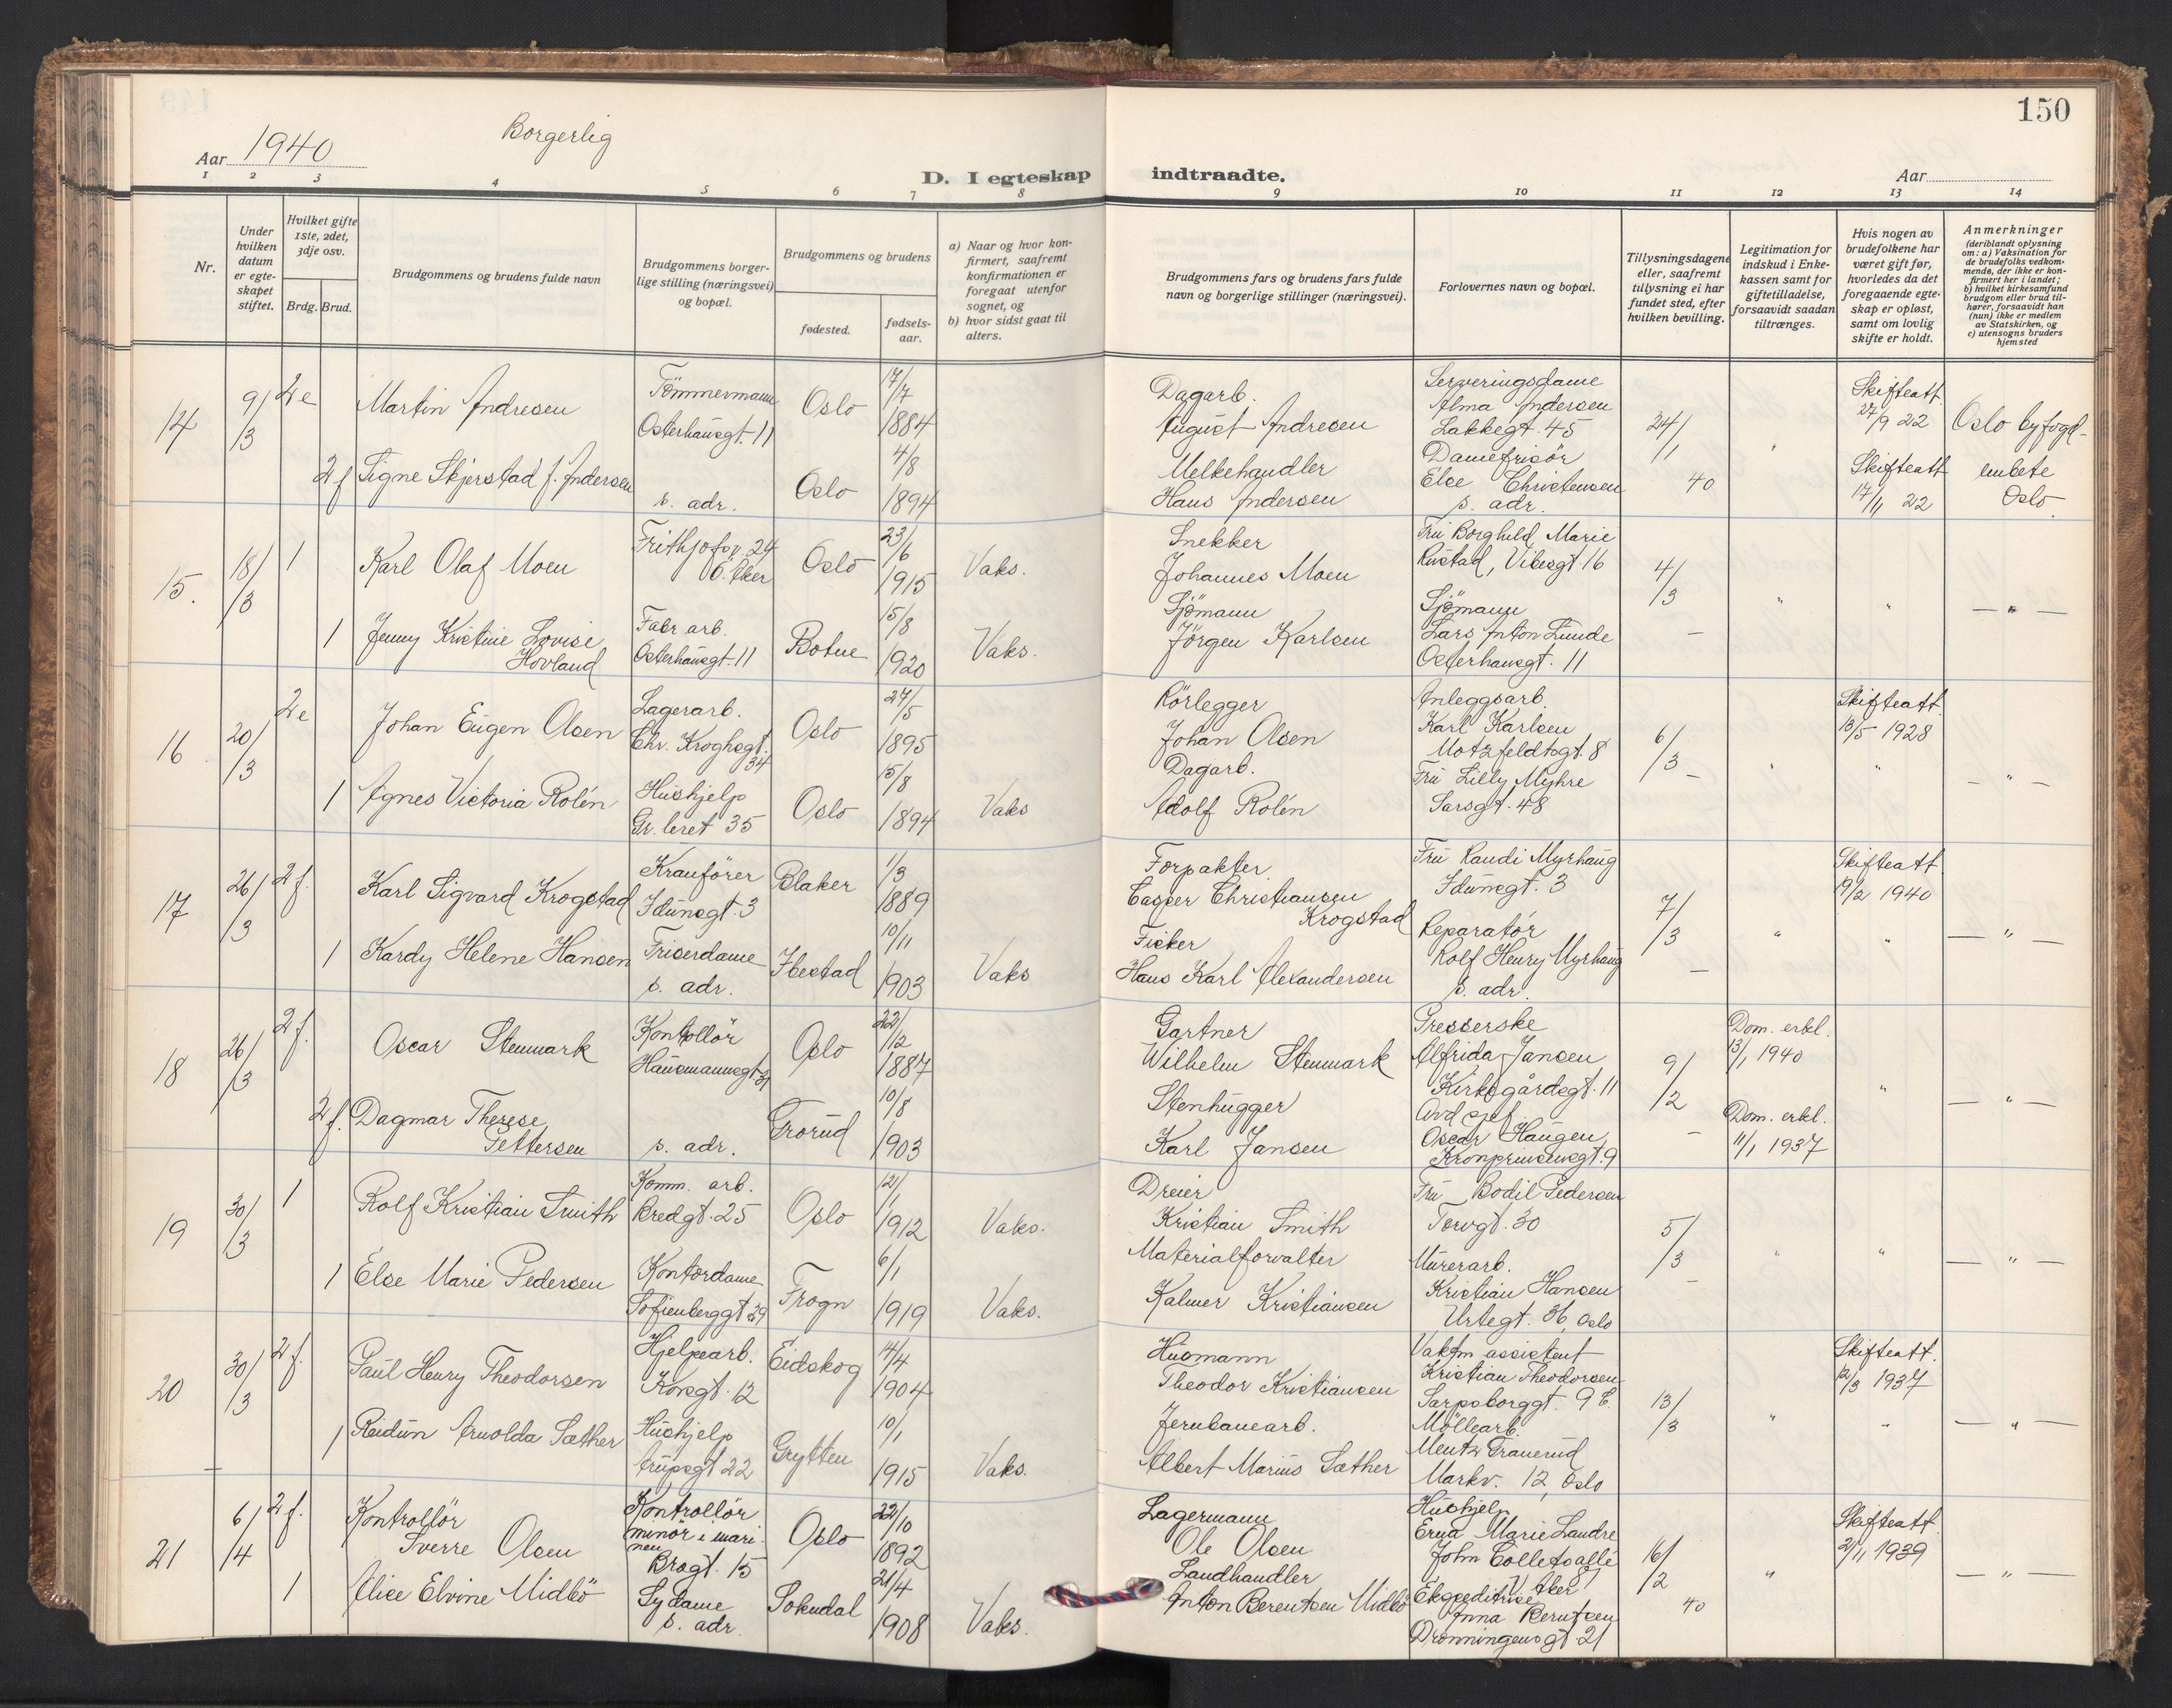 150
Borgerlig
Aar 1940
D. I egteskap indtraadte.
Aar
1 2 3 4 5 6 7 8 9 10 11 12 13 14
Nr.
Under hvilken datum er egteskapet stiftet.
Hvilket gifte 1ste, 2det, 3dje osv.
Brdg. Brud.
Brudgommens og brudens fulde navn
Brudgommens borgerlige stilling (næringsvei) og bopæl.
Brudgommens og brudens
fødested.
fødselsaar.
a) Naar og hvor konfirmert, saafremt konfirmationen er foregaat utenfor sognet, og
b) hvor sidst gaat til alters.
Brudgommens fars og brudens fars fulde navn og borgerlige stillinger (næringsvei).
Forlovernes navn og bopæl.
Tillysningsdagene eller, saafremt tillysning ei har fundet sted, efter hvilken bevilling.
Legitimation for indskud i Enkekassen samt for giftetilladelse, forsaavidt saadan tiltrænges.
Hvis nogen av brudefolkene har været gift før, hvorledes da det foregaaende egteskap er opløst, samt om lovlig skifte er holdt.
Anmerkninger
(deriblandt oplysning om: a) Vaksination for de brudefolks vedkommende, der ikke er konfirmert her i landet; b) hvilket kirkesamfund brudgom eller brud tilhører, forsaavidt han (hun) ikke er medlem av Statskirken, og c) utensogns bruders hjemsted
14 9/3 2e Martin Andresen Tömmermann Osterhausgt. 11 Oslo 17/7 1884 Dagarb. August Andresen Serveringsdame Alma Andersen Lakkegt. 45 24/1 40 " Skifteatt. 27/9 22 Oslo byfogdembete Oslo.
2f Signe Skjerstad f. Andersen s. adr. Oslo 4/8 1894 Melkehandler Hans Andersen Damefrisör Else Christensen s. adr. Skifteatt 17/11 22
15. 18/3 1 Karl Olaf Moen Frithjofsv. 24 Ö. Aker Oslo 23/6 1915 Vaks. Snekker Johannes Moen Fru Borghild Marie Rustad, Vibesgt. 16 4/3 - " " — " —
1 Jenny Kristine Lovise Hovland Fabr arb. Osterhausgt. 11 Botne 15/8 1920 Vaks. Sjömann Jörgen Karlsen Sjömann Lars Anton Lunde Osterhausgt. 11
16 20/3 2e Johan Eugen Olsen Lagerarb. Chr. Kroghsgt. 34 Oslo 27/5 1895 Rörlegger Johan Olsen Anleggsarb. Karl Karlsen Motzfeldtsgt. 8 6/3 - " Skifteatt. 18/5 1928 " — " —
1 Agnes Victoria Rolén Hushjelp Gr. leret 35 Oslo 15/8 1894 Vaks Dagarb. Adolf Rolén Fru Lilly Myhre Sarsgt. 48
17 26/3 2f. Karl Sigvard Krogstad Kranförer Idunsgt. 3 Blaker 1/3 1889 Forpakter Casper Christiansen Krogstad Fru Randi Myrhaug Idunsgt. 3 7/3 - " Skifteatt 19/2 1940 " — " —
1 Kardy Helene Hansen Friserdame s. adr. Ibestad 10/11 1903 Vaks Fisker Hans Karl Alexandersen Reparatör Rolf Henry Myrhaug s. adr.
18 26/3 2f. Oscar Stenmark Kontrollör Hausmannsgt. 31 Oslo 22/12 1887 Gartner Wilhelm Stenmark Presserske Alfrida Jansen Kirkegårdsgt. 11 9/2 - Dom. erkl. 13/1 1940 " — " —
2f. Dagmar Therese Pettersen s. adr. Grorud 10/8 1903 Stenhugger Karl Jansen Avd sjef Oscar Haugen Kronprinsensgt. 9 Dom. erkl. 11/1 1937
19 30/3 1 Rolf Kristian Smith Komm. arb. Bredgt. 25 Oslo 12/1 1912 Vaks. Dreier Kristian Smith Fru Bodil Pedersen Torvgt. 30 5/3 - " " — " —
1 Else Marie Pedersen Kontordame Sofienberggt 29 Frogn 6/1 1919 Vaks. Materialforvalter Kalmer Kristiansen Murerarb. Kristian Hansen Urtegt. 36, Oslo
20 30/3 2f. Paul Henry Theodorsen Hjelpearb. Korsgt. 12 Eidskog 14/4 1904 Husmann Theodor Kristiansen Vaktm assistent Kristian Theodorsen Sarpsborggt. 9 C. 13/3 " Skifteatt. 12/3 1937 " — " —
1 Reidun Arnolda Sæther Hushjelp Arupsgt 22 Grytten 10/1 1915 Vaks. Jernbanearb. Albert Marius Sæther Möllearb. Mentz Granerud Markv. 12, Oslo
21 6/4 2f. Kontrollör Sverre Olsen Kontrollör minör i marinen Brogt. 15 Oslo 22/10 1892 Lagermann Ole Olsen Hushjelp Erna Marie Landre John Colletsallé 87 V. Aker 16/2 40 " Skifteatt. 2/11 1939 — " —
1 Alice Elvine Midbö Sydame s. adr. Sokndal 21/4 1908 Vaks. Landhandler Anton Berentsen Midbö Ekspeditrise Anna Berntsen Dronningensgt. 21